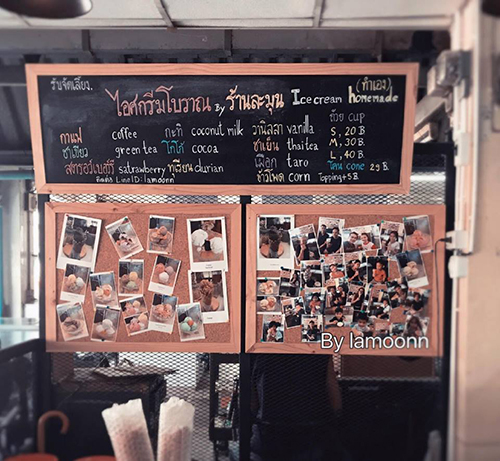 รับจัดเลี้ยง.
(ทำเอง)
ไอศกรีมโบราณ By ร้านละมุน Icecream homemade
กาแฟ coffee กะทิ coconut milk วานิลลา vanilla
ถ้วย cup
S, 20 B.
ชาเขียว green tea โกโก้ cocoa ชาเย็น thai tea M, 30 B.
สตรอว์เบอร์รี่ satrawberry ทุเรียน durian เผือก taro L, 40 B.
ติดต่อ Line ID: lamoonn ข้าวโพด corn โคน cone 29 B.
Topping +5 B.
By lamoonn